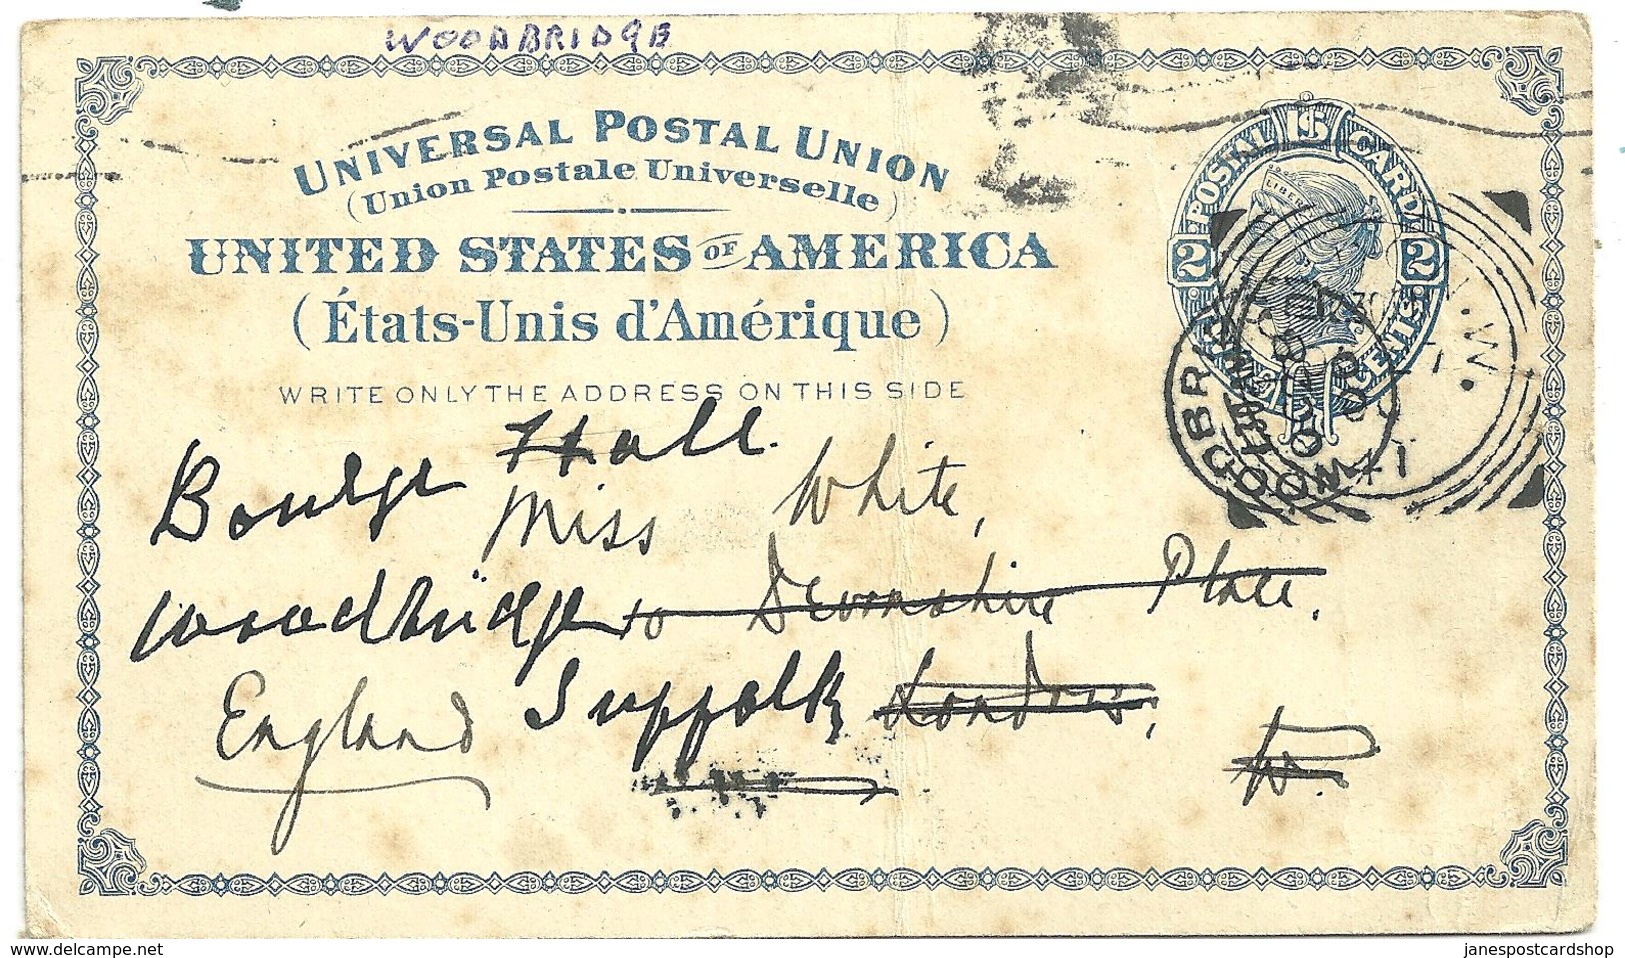 WOODBRIDGE
UNIVERSAL POSTAL UNION
(Union Postale Universelle)
UNITED STATES OF AMERICA
(États-Unis d'Amérique)
WRITE ONLY THE ADDRESS ON THIS SIDE
POSTAL CARD
U S
LIBERTY
2 2
CENTS
WOODBRIDGE
N.W.
Boulge Hall.
Miss White,
Woodbridge 10 Devonshire Place.
Suffolk London,
England W.
© delcampe.net
janespostcardshop